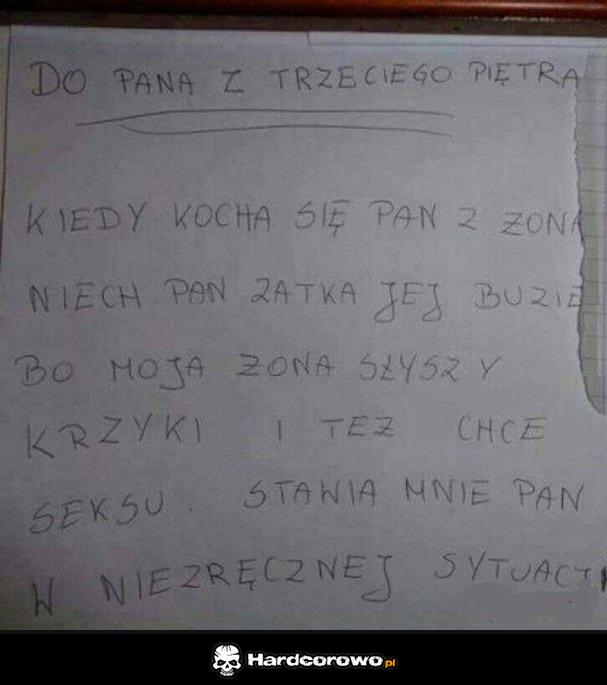 DO PANA Z TRZECIEGO PIĘTRA
KIEDY KOCHA SIĘ PAN Z ZONA
NIECH PAN ZATKA JEJ BUZIE
BO MOJA ZONA SŁYSZY
KRZYKI I TEZ CHCE
SEKSU. STAWIA MNIE PAN
W NIEZRĘCZNEJ SYTUACJI
Hardcorowo.pl